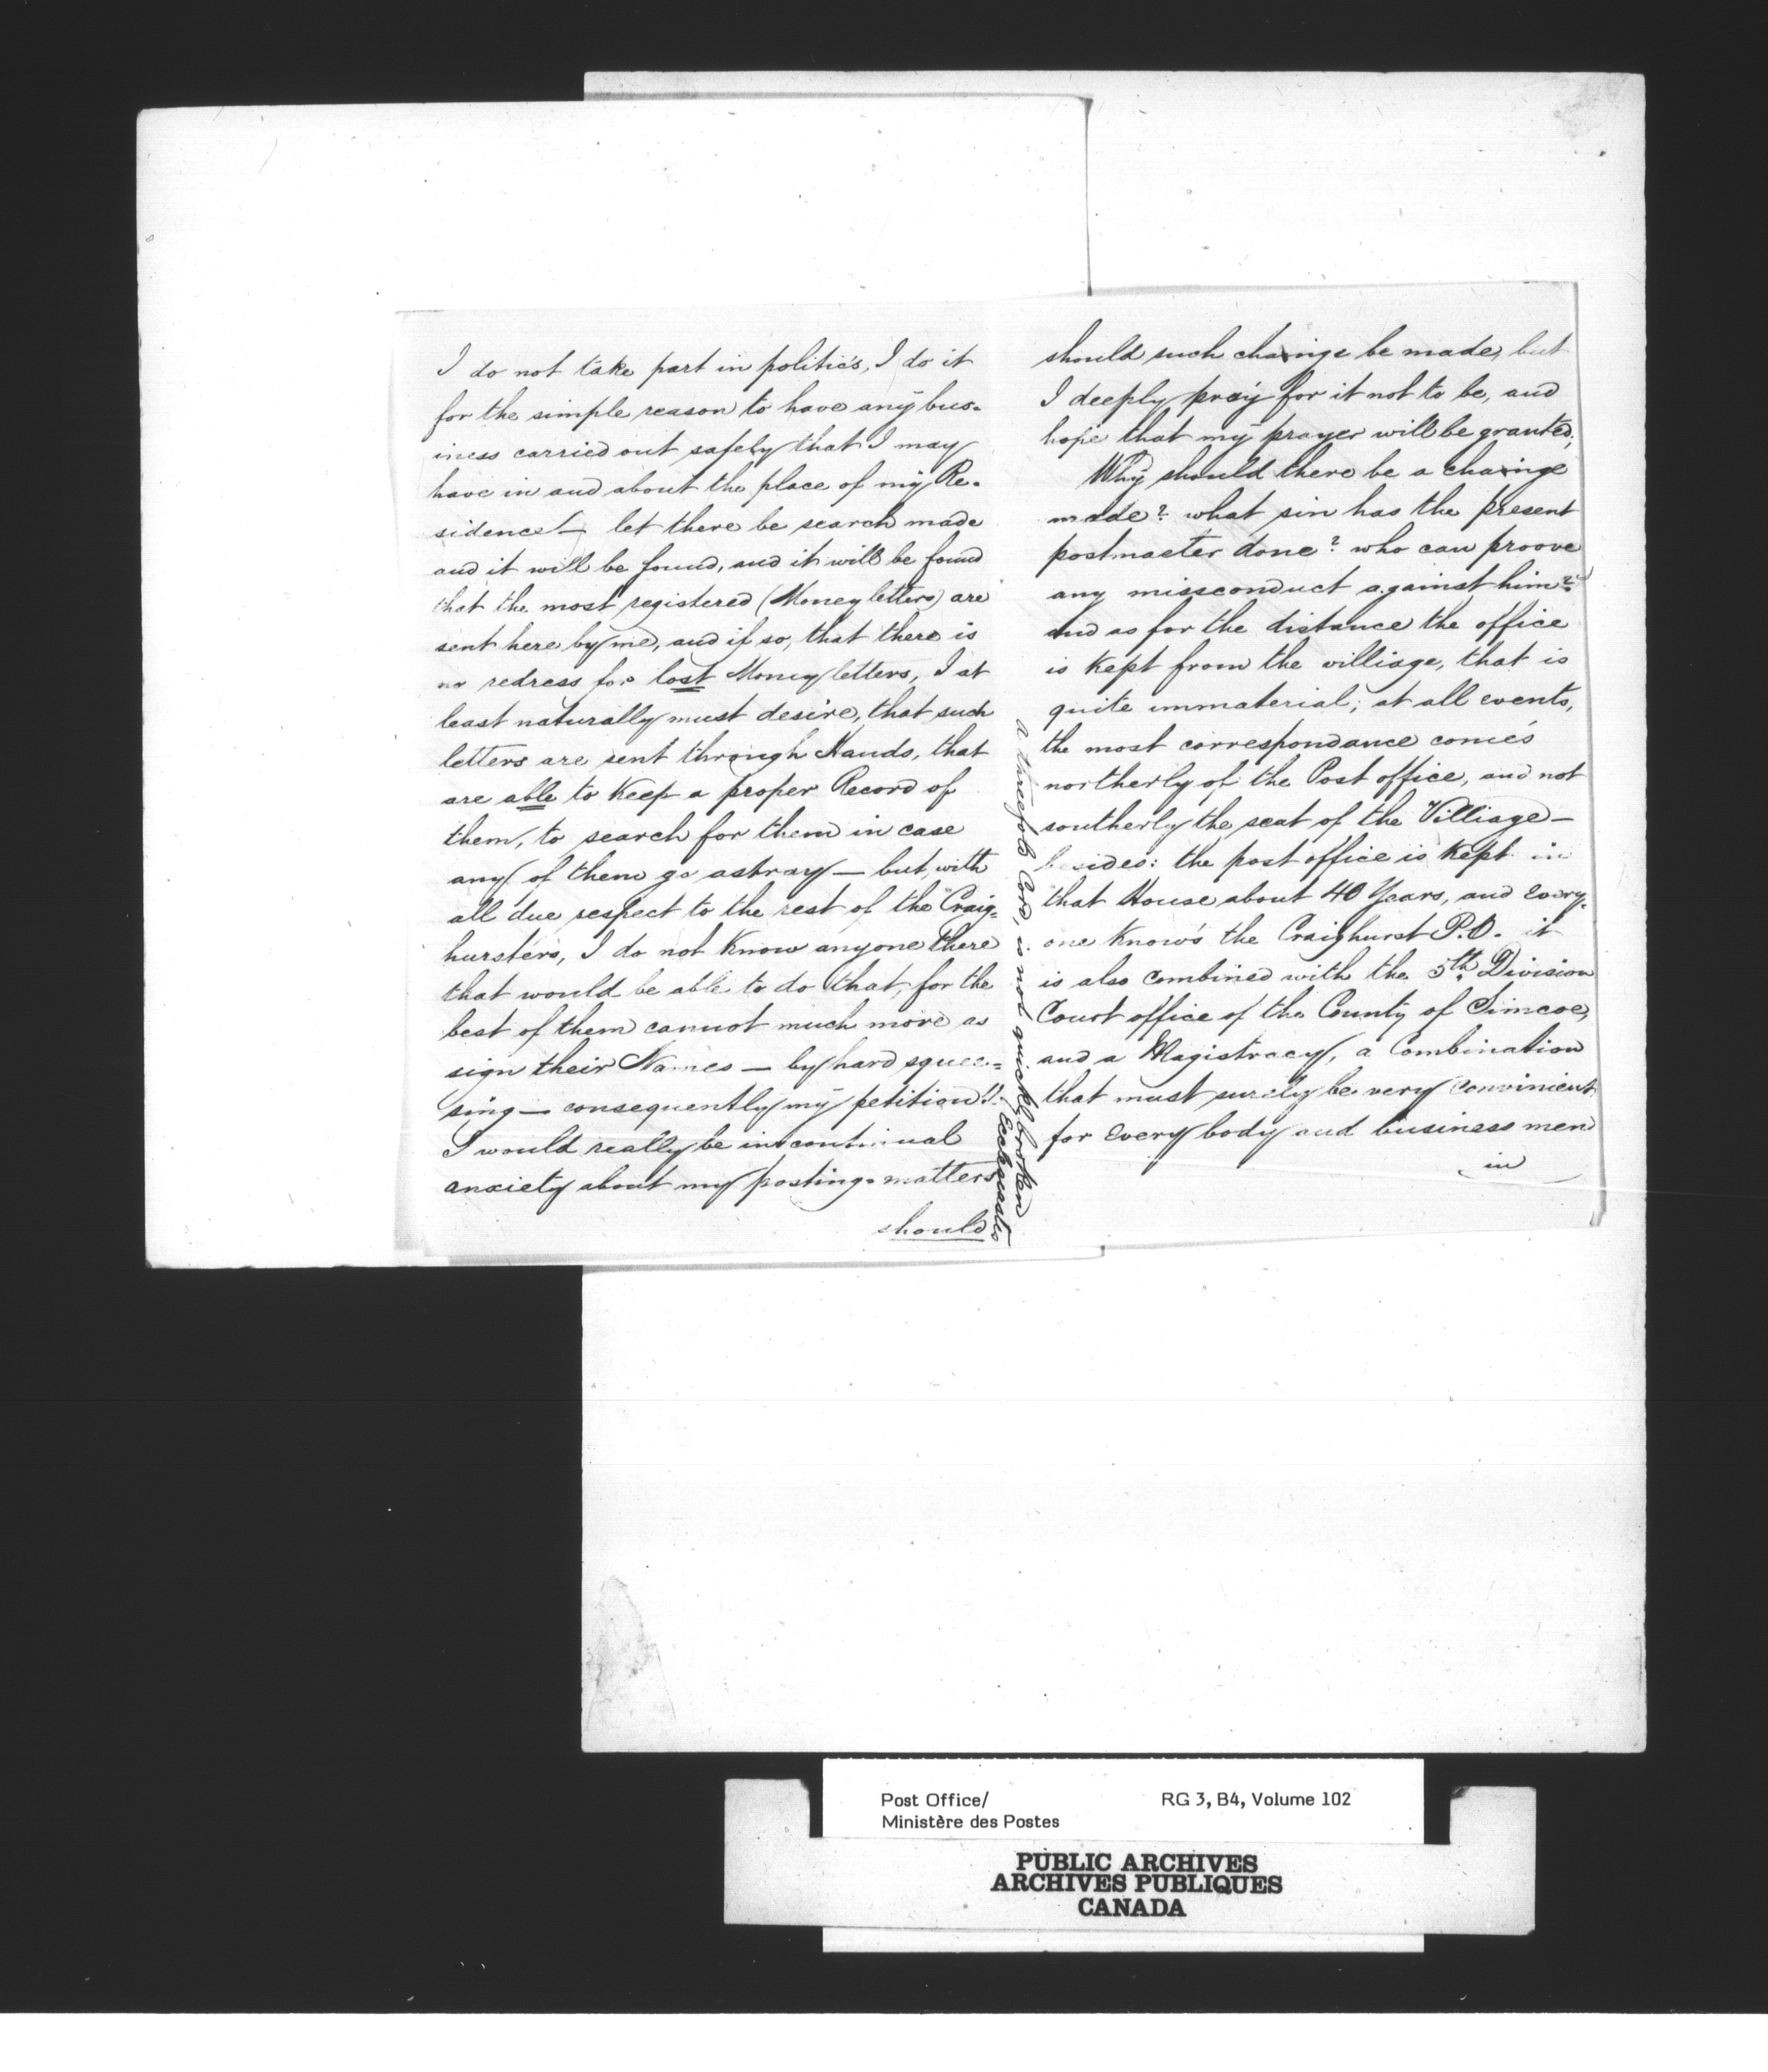 I do not take part in politic's, I do it
for the simple reason to have any bus-
iness carried out safely that I may
have in and about the place of my Re-
sidence! — let there be search made
and it will be found, and it will be found
that the most registered (Money letters) are
sent here by me, and if so, that there is
no redress for lost Money letters, I at
least naturally must desire, that such
letters are sent through Hands, that
are able to Keep a proper Record of
them, to search for them in case
any of them go astray — but, with
all due respect to the rest of the Craig-
hursters, I do not Know anyone there
that would be able to do that, for the
best of them cannot much more as
sign their Names — by hard squee-
sing — consequently my petition!!
I would really be in continual
anxiety about my posting-matters
should
a threefold Cord, is not quickly broken
Ecclesiastes
should such chainge be made, but
I deeply pray for it not to be, and
hope that my prayer will be granted;
Why should there be a chainge
made? what sin has the present
postmaster done? who can proove
any missconduct against him?
And as for the distance the office
is Kept from the villiage, that is
quite immaterial; at all events,
the most correspondance come's
northerly of the Post office, and not
southerly the seat of the Villiage —
besides: the post office is Kept in
that House about 40 Years, and Every-
one Know's the Craighurst P.O. it
is also combined with the 5th Division
Court office of the County of Simcoe,
and a Magistracy, a Combination
that must surely be very Convinient
for Every body and business men
in
Post Office/
Ministère des Postes
RG 3, B4, Volume 102
PUBLIC ARCHIVES
ARCHIVES PUBLIQUES
CANADA